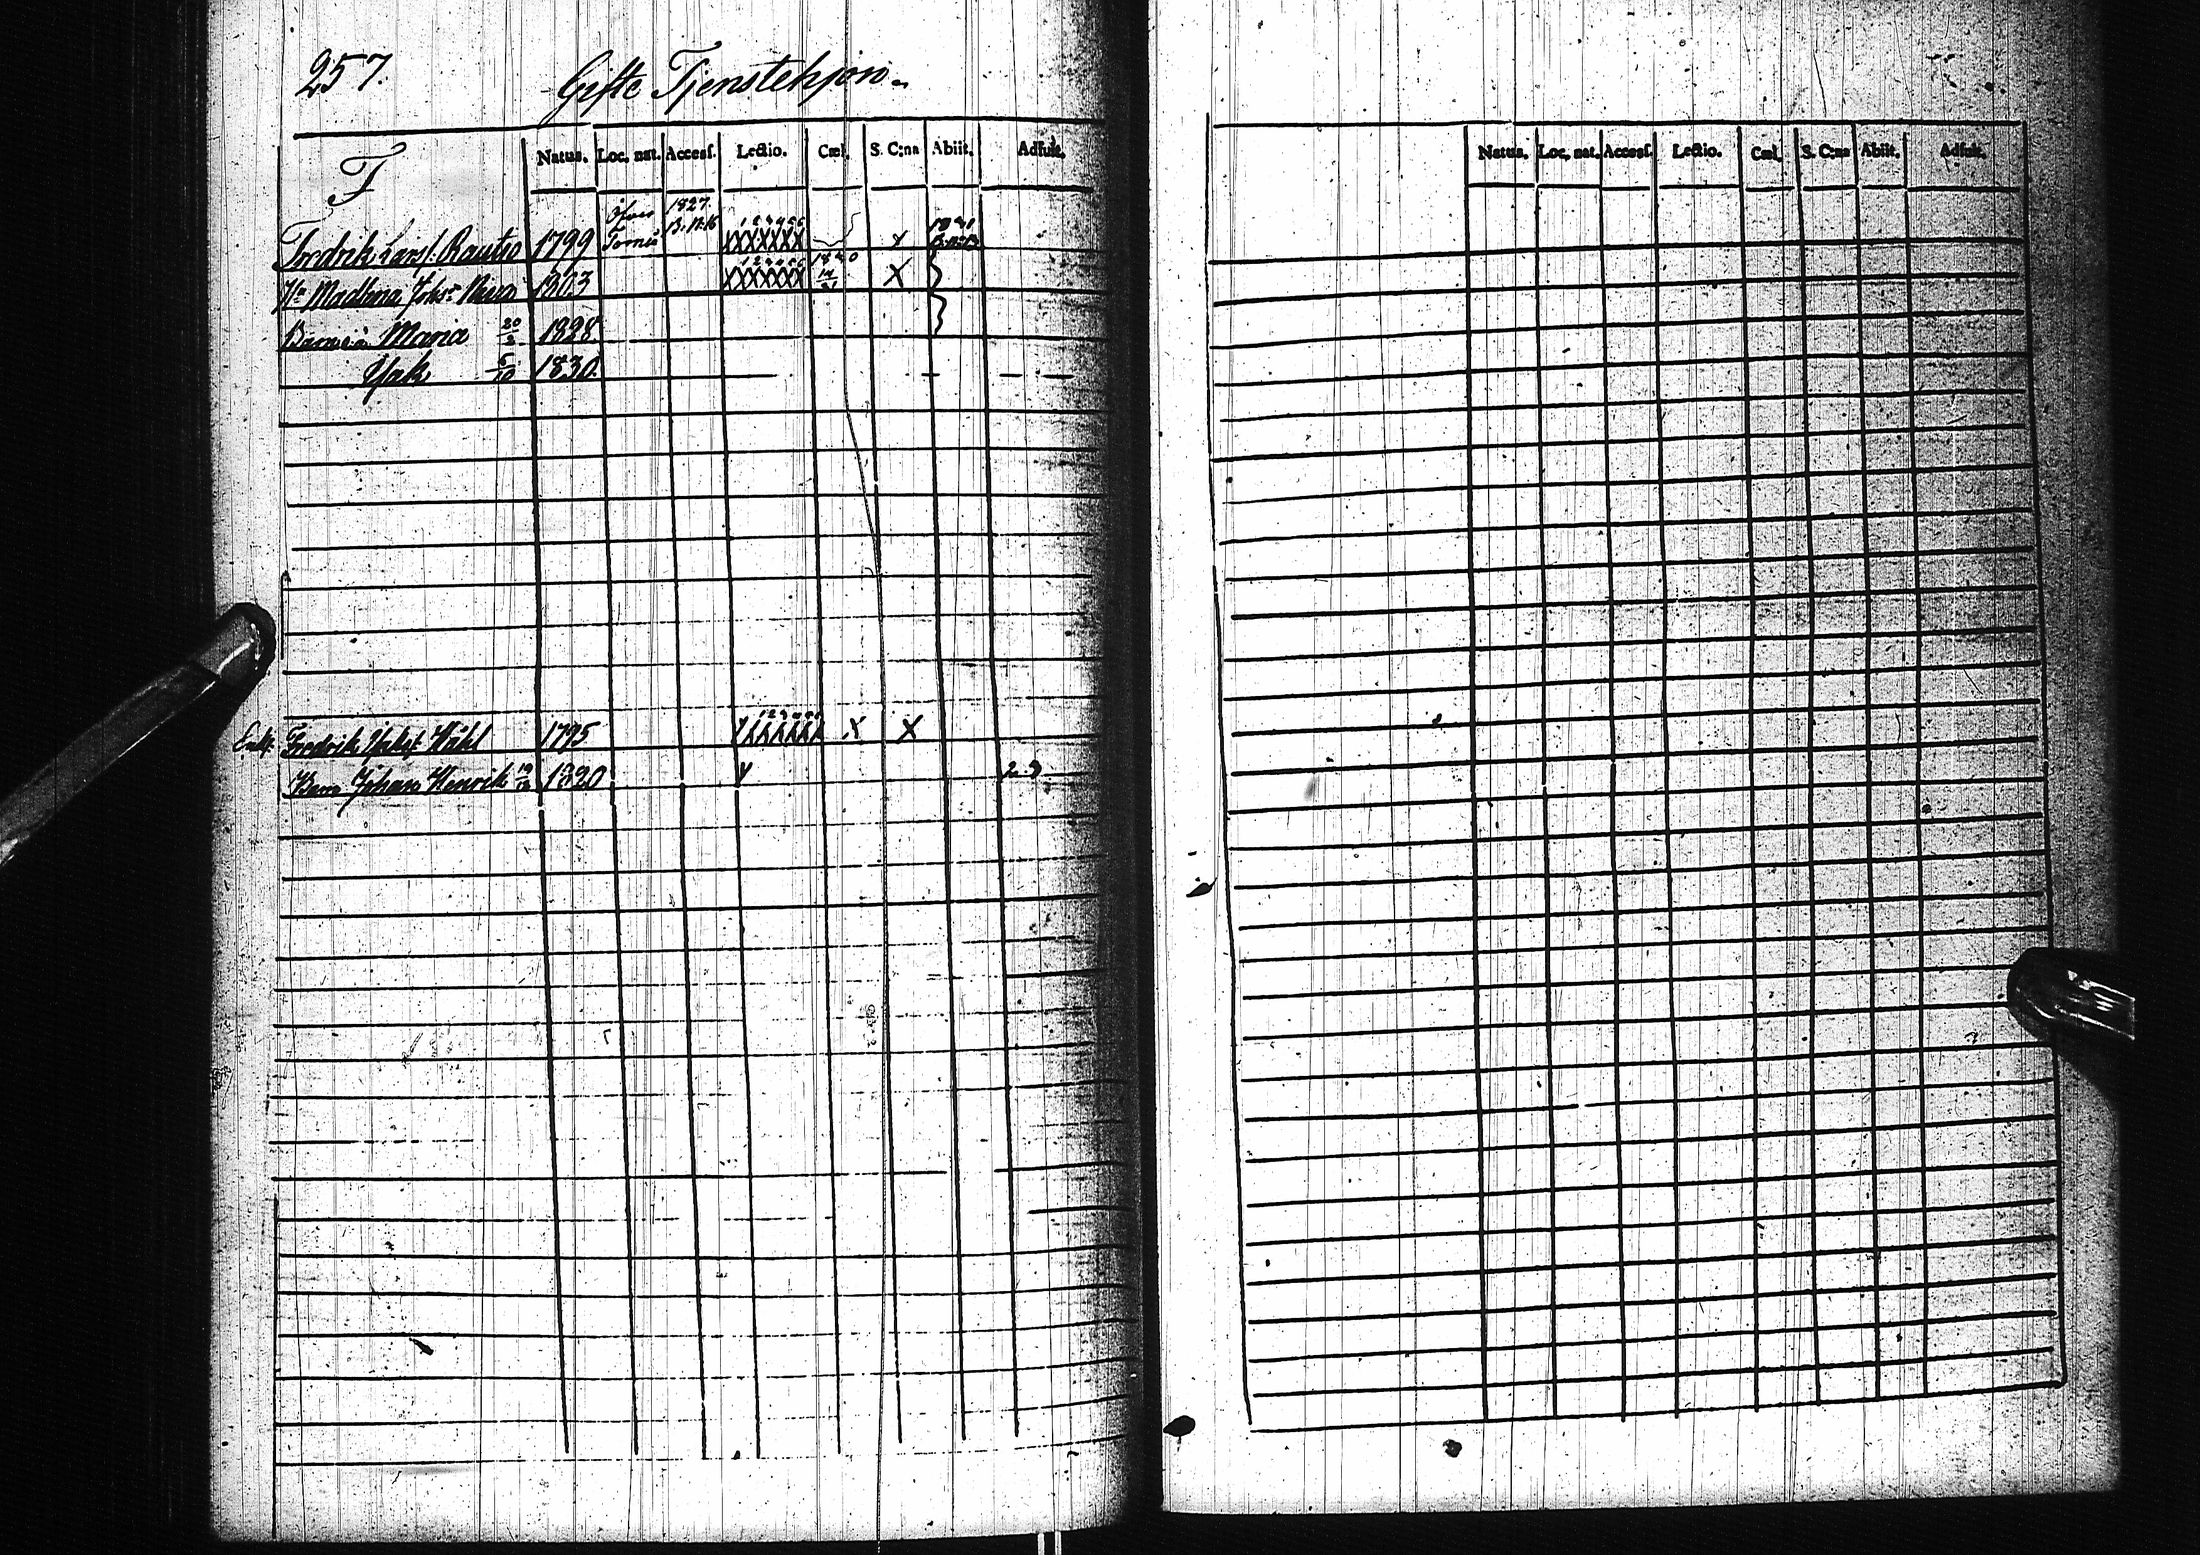 257.
Gifte Tjenstehjon.
F
Natus. Loc. nat. Accesf. Lectio. Cœl. S. C:na Abiit. Adfuit.
Fredrik Larsf. Rautio 1799 Öfver Torneå 1827. B. N:16 1 2 3 4 5 6 XXXXXXX x 1841
Hu Madlena Johsr 1803 1 2 3 4 5 6 XXXXXXX 1840 X
Barn: a Maria 20/2 1828
Isak 5/10 1830.
Enkl. Fredrik Isaksf. Wähl 1795 1 2 3 4 5 6 X X
Barn Johan Henrik 19/12 1820 2.9
Natus. Loc. nat. Accesf. Lectio. Cœl. S. C:na Abiit. Adfuit.